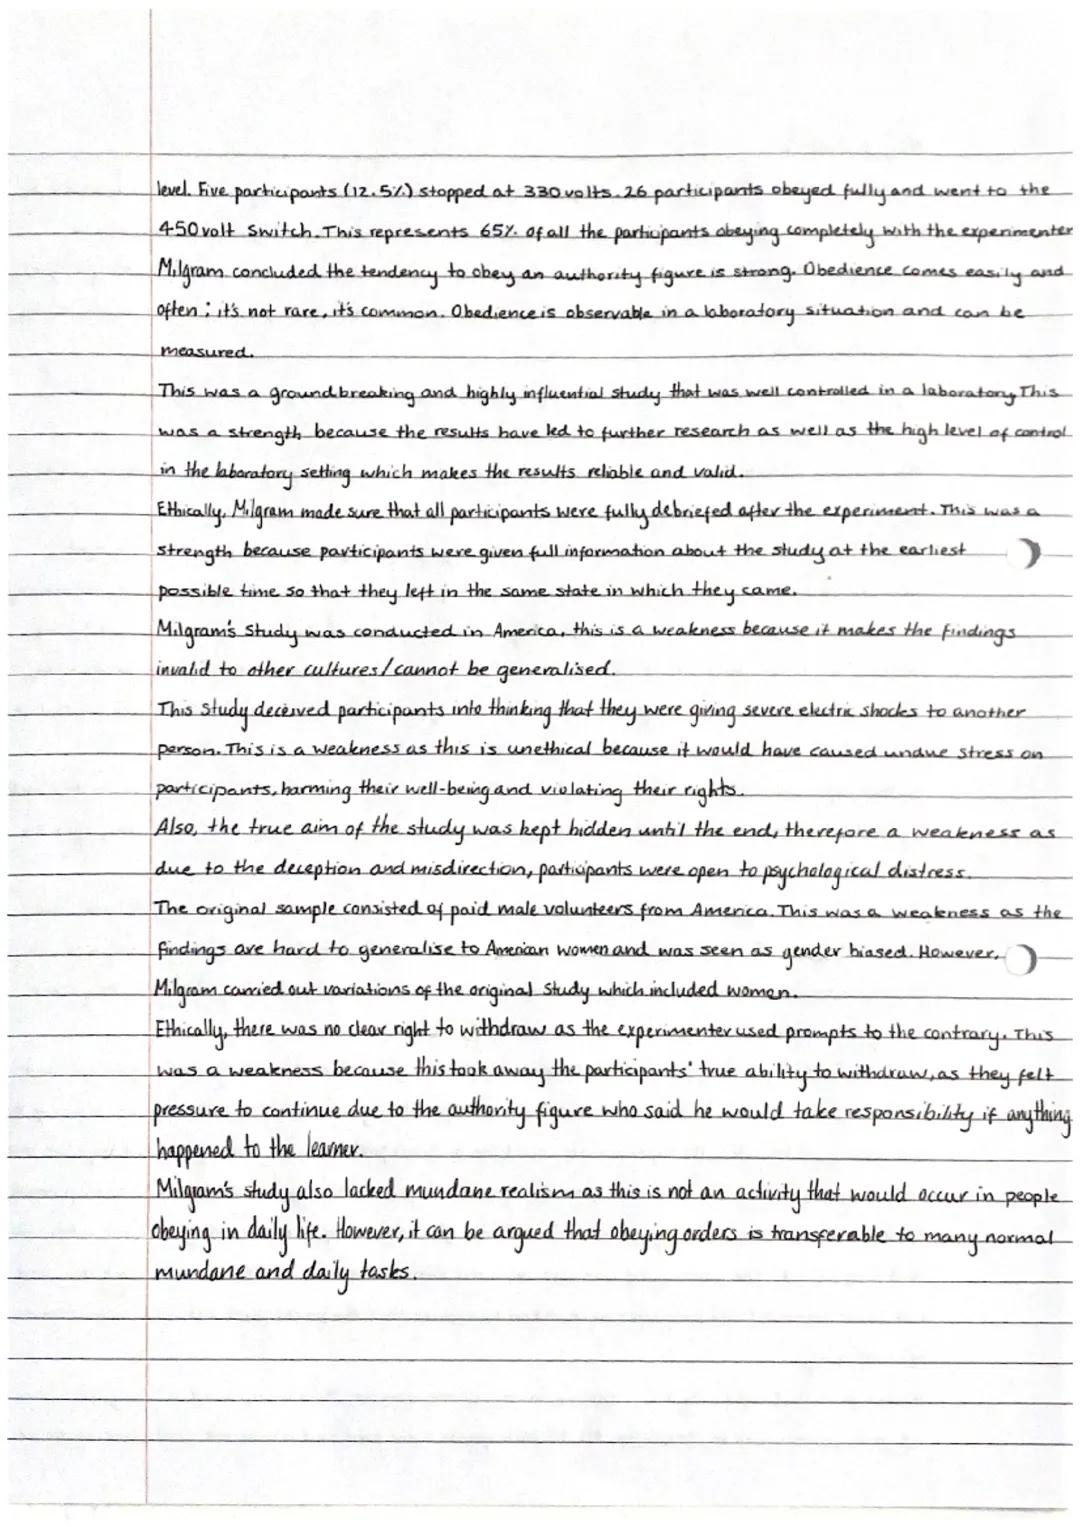 level. Five participants (12.5%) stopped at 330 volts. 26 participants obeyed fully and went to the
450 volt switch. This represents 65% of all the participants obeying completely with the experimenter
Milgram concluded the tendency to obey an authority figure is strong. Obedience comes easily and
often; it's not rare, it's common. Obedience is observable in a laboratory situation and can be
measured.
This was a groundbreaking and highly influential study that was well controlled in a laboratory. This
was a strength because the results have led to further research as well as the high level of control
in the laboratory setting which makes the results reliable and valid.
Ethically, Milgram made sure that all participants were fully debriefed after the experiment. This was a
strength because participants were given full information about the study at the earliest
possible time so that they left in the same state in which they came.
Milgram's Study was conducted in America, this is a weakness because it makes the findings
invalid to other cultures/cannot be generalised.
This study deceived participants into thinking that they were giving severe electric shocks to another
person. This is a weakness as this is unethical because it would have caused undue stress on
participants, harming their well-being and violating their rights.
Also, the true aim of the study was kept hidden until the end, therefore a weakness as
due to the deception and misdirection, participants were open to psychological distress.
The original sample consisted of paid male volunteers from America. This was a weakness as the
findings are hard to generalise to American women and was seen as gender biased. However,
Milgram carried out variations of the original study which included women.
Ethically, there was no clear right to withdraw as the experimenter used prompts to the contrary. This
was a weakness because this took away the participants' true ability to withdraw, as they felt
pressure to continue due to the authority figure who said he would take responsibility if anything
happened to the learner.
Milgram's study also lacked mundane realism as this is not an activity that would occur in people
obeying in daily life. However, it can be argued that obeying orders is transferable to many normal
mundane and daily tasks.